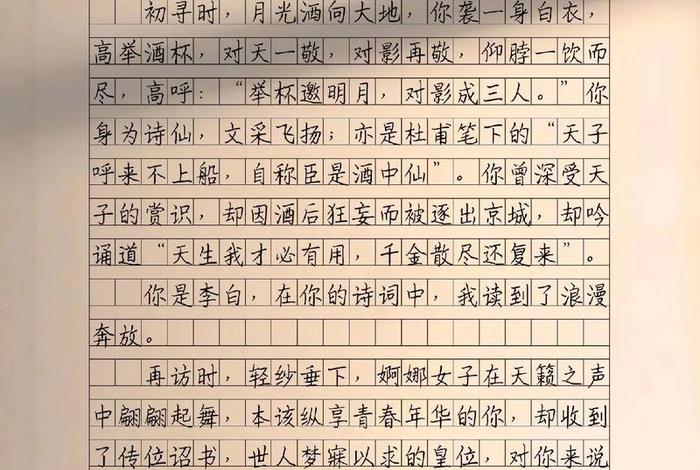 初寻时，月光洒向大地，你袭一身白衣，
高举酒杯，对天一敬，对影再敬，仰脖一饮而
尽，高呼：“举杯邀明月，对影成三人。”你
身为诗仙，文采飞扬；亦是杜甫笔下的“天子
呼来不上船，自称臣是酒中仙”。你曾深受天
子的赏识，却因酒后狂妄而被逐出京城，却吟
诵道“天生我才必有用，千金散尽还复来”。
你是李白，在你的诗词中，我读到了浪漫
奔放。
再访时，轻纱垂下，婀娜女子在天籁之声
中翩翩起舞，本该纵享青春年华的你，却收到
了传位诏书，世人梦寐以求的皇位，对你来说